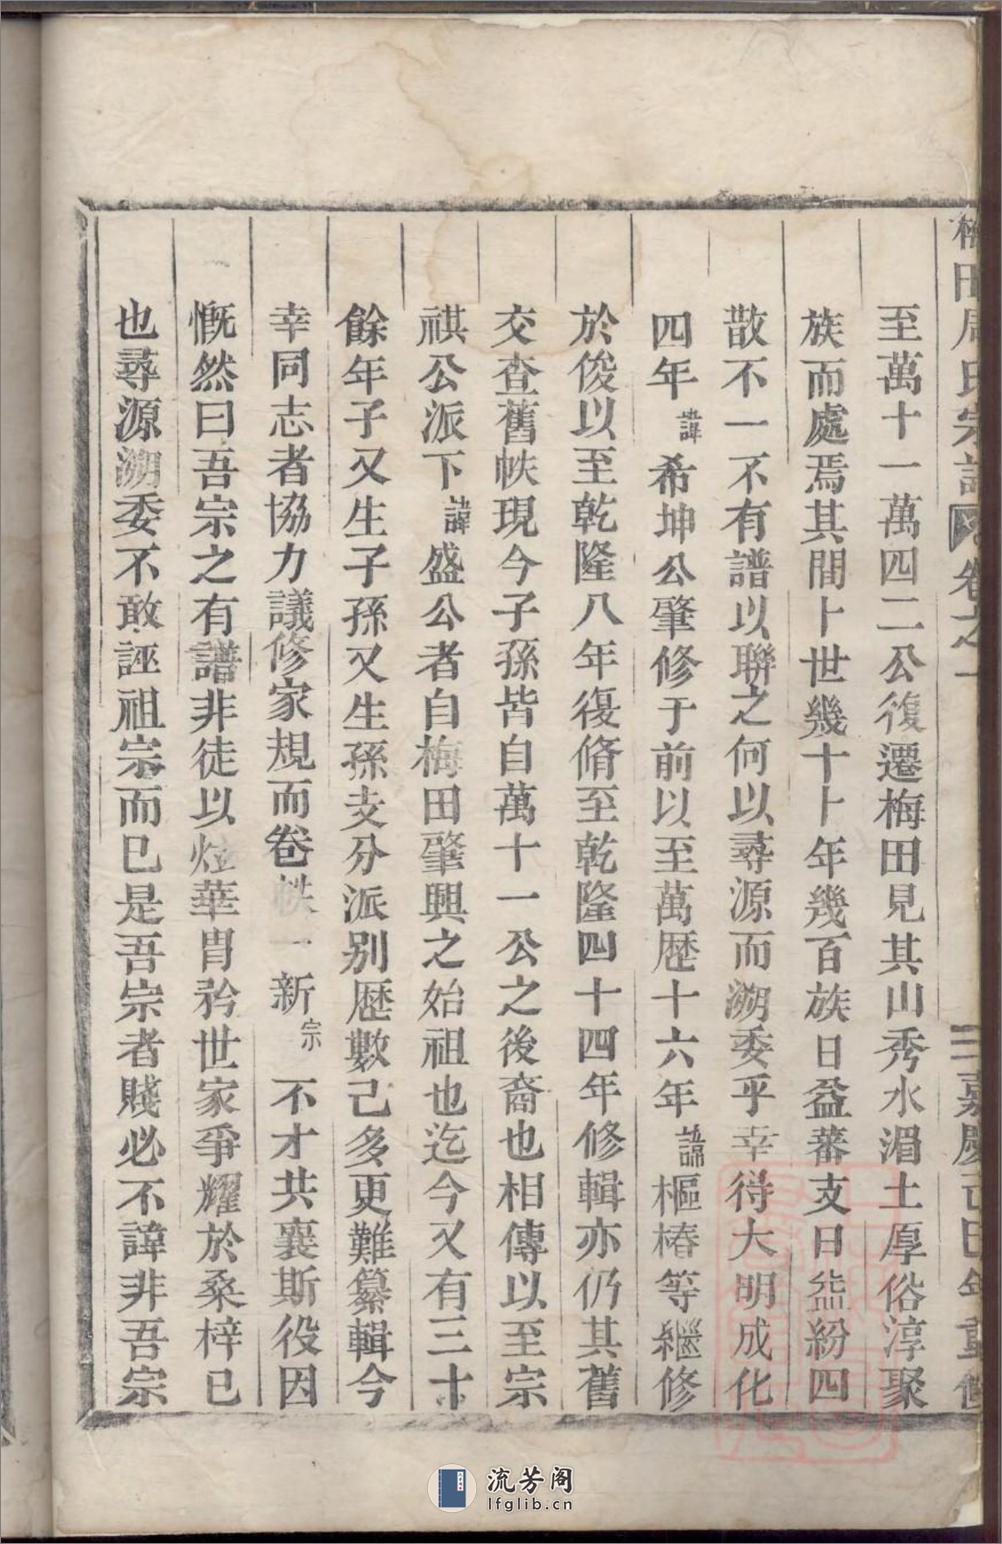 梅田周氏宗譜 卷之一 二 嘉慶己巳年重修
至萬十一萬四二公復遷梅田見其山秀水湄土厚俗淳聚
族而處焉其間卜世幾十卜年幾百族日益蕃支日益紛四
散不一不有譜以聯之何以尋源而溯委乎幸得大明成化
四年諱希坤公肇修于前以至萬歷十六年諱樞椿等繼修
於後以至乾隆八年復脩至乾隆四十四年修輯亦仍其舊
交查舊帙現今子孫皆自萬十一公之後裔也相傳以至宗
祺公派下諱盛公者自梅田肇興之始祖也迄今又有三十
餘年子又生子孫又生孫支分派別歷數已多更難纂輯今
幸同志者協力議修家規而卷帙一新宗不才共襄斯役因
慨然曰吾宗之有譜非徒以炫華胄矜世家爭耀於桑梓已
也尋源溯委不敢誣祖宗而已是吾宗者賤必不諱非吾宗
流芳阁
lfglib.cn